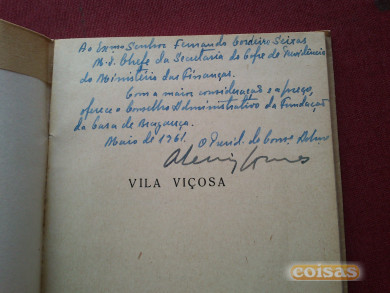 Ao Exmo Senhor Fernando Cordeiro Seixas
M. D. Chefe da Secretaria do Cofre de Previdência
do Ministério das Finanças.
Com a maior consideração e apreço,
oferece o Conselho Administrativo da Fundação
da Casa de Bragança.
Maio de 1961. O Presid. do Cons. Admin
VILA VIÇOSA
coisas